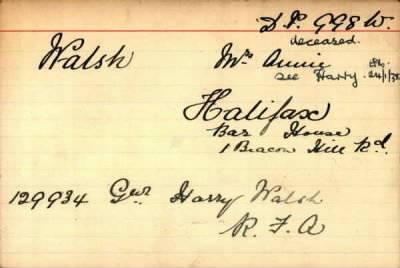 D P. 998 W.
deceased.
Walsh Mrs Annie
see Harry. 24/1/30
Halifax
Bar House
1 Beacon Hill Rd.
129934 Gnr Harry Walsh
R. F. A